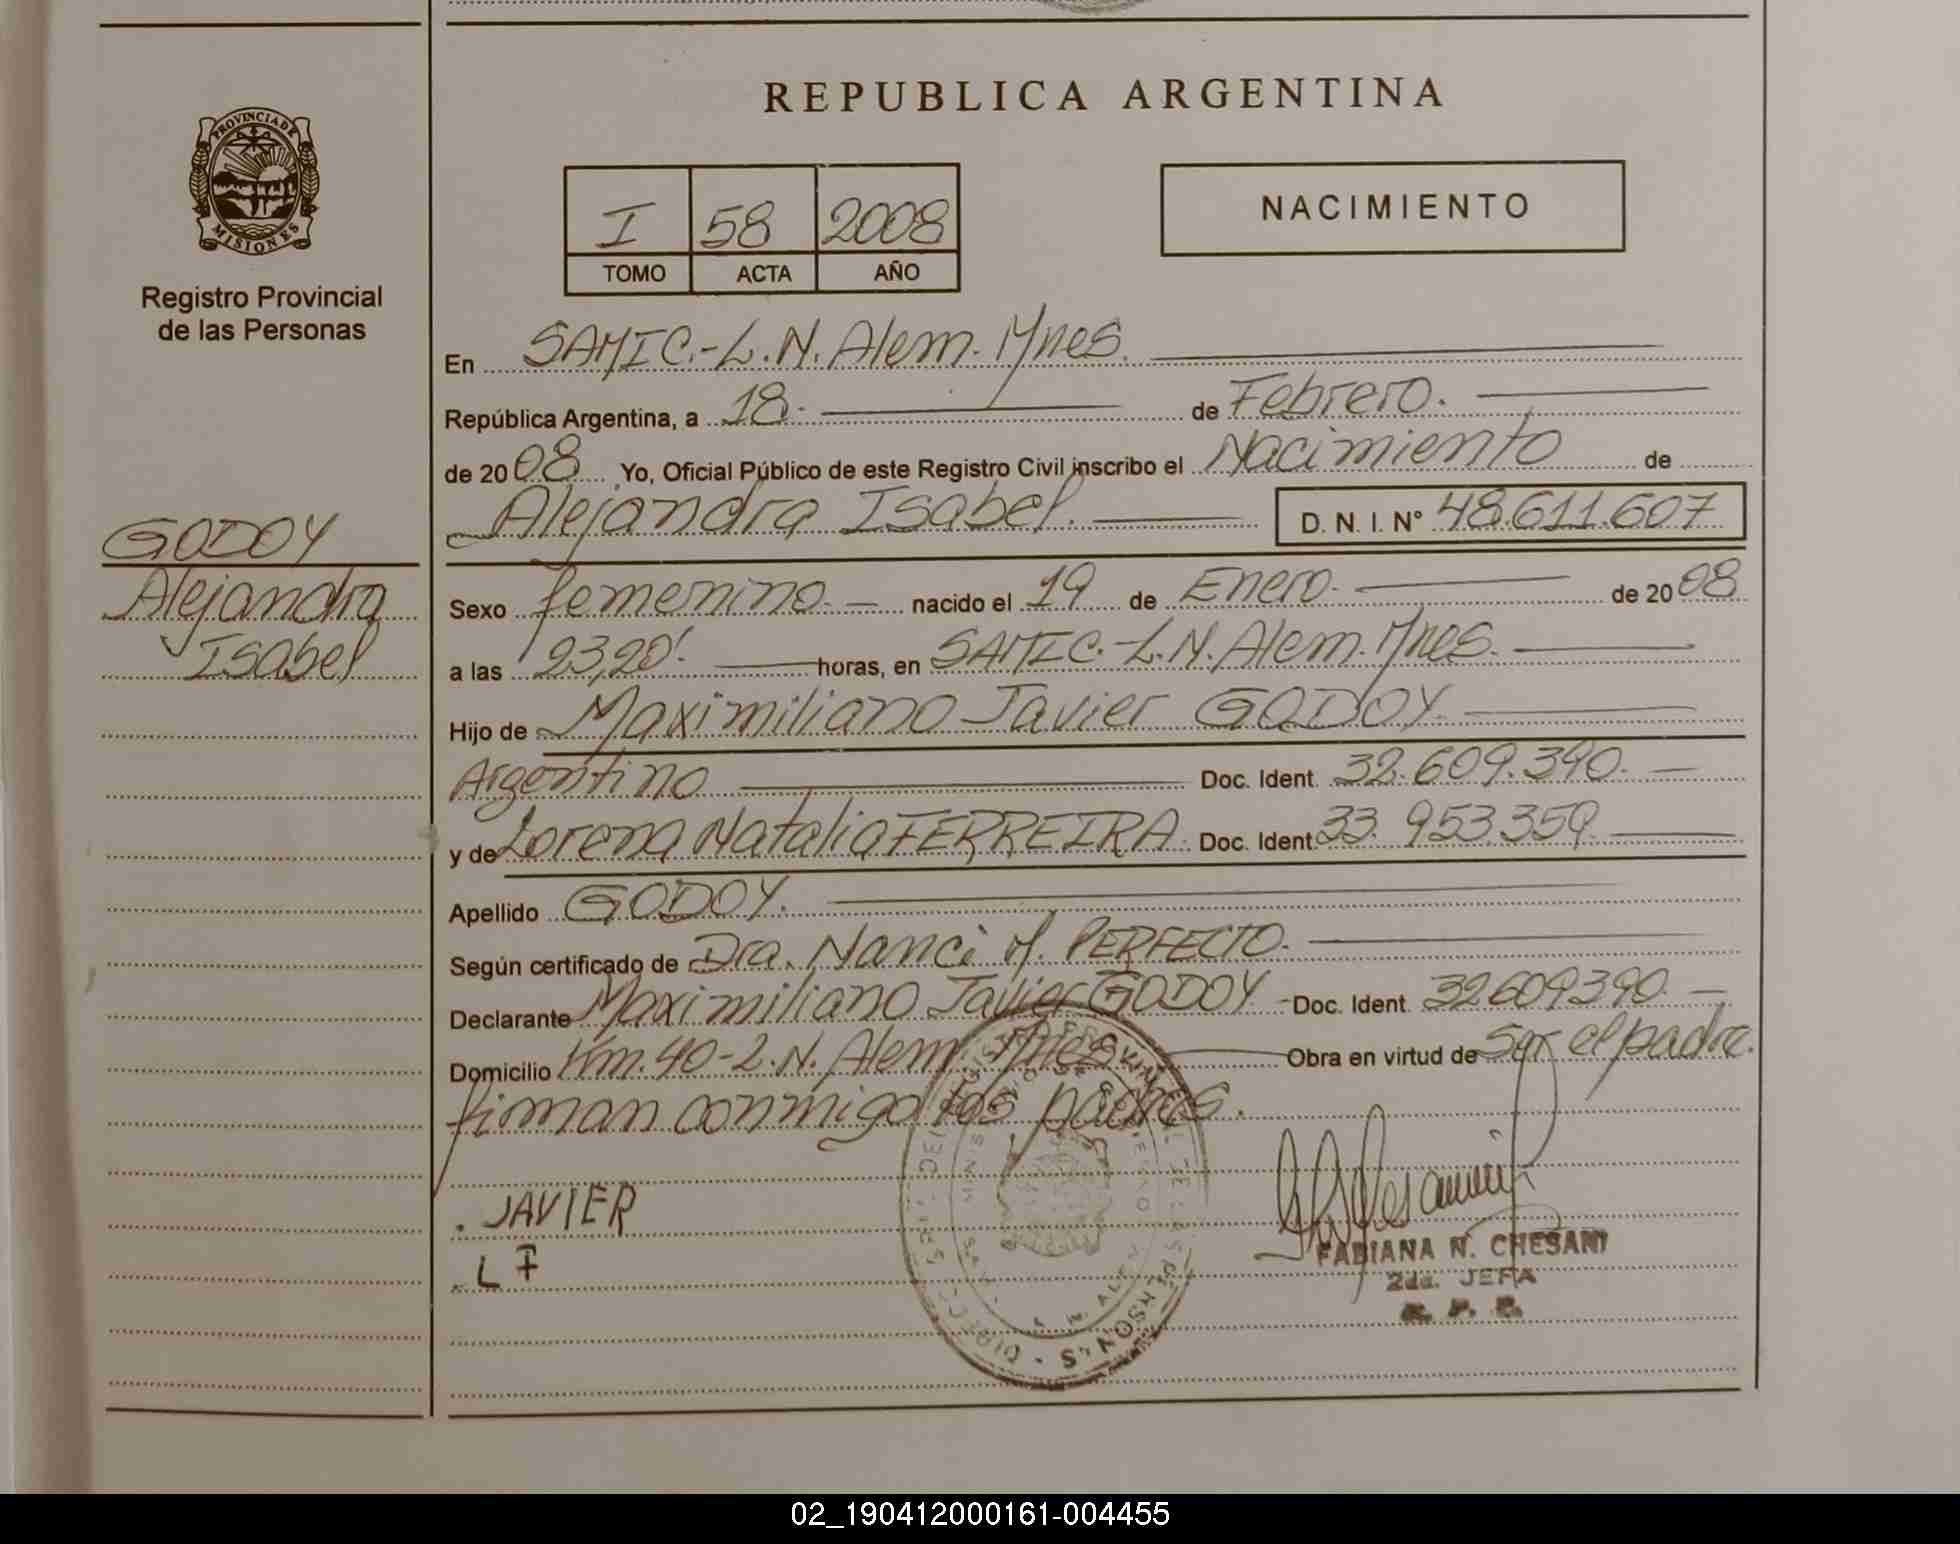 REPUBLICA ARGENTINA
PROVINCIA DE
MISIONES
Registro Provincial
de las Personas
I 58 2008
TOMO ACTA AÑO
NACIMIENTO
En SAMIC.-L.N. Alem. Mnes.
República Argentina, a 18. de Febrero.
de 2008 Yo, Oficial Público de este Registro Civil inscribo el Nacimiento de
Alejandra Isabel. D. N. I. N° 48.611.607
GODOY
Alejandra
Isabel
Sexo femenino. nacido el 19 de Enero. de 2008
a las 23,20'. horas, en SAMIC.-L.N. Alem. Mnes.
Hijo de Maximiliano Javier GODOY.
Argentino Doc. Ident. 32.609.390.
y de Lorena Natalia FERREIRA. Doc. Ident. 33.953.359.
Apellido GODOY.
Según certificado de Dra. Nanci M. PERFECTO.
Declarante Maximiliano Javier GODOY - Doc. Ident. 32609390.
Domicilio Km.40-L.N. Alem. Mnes Obra en virtud de Ser el padre.
firman conmigo los padres.
JAVIER
L F
FABIANA N. CHESANI
2da. JEFA
R. P. P.
02_190412000161-004455